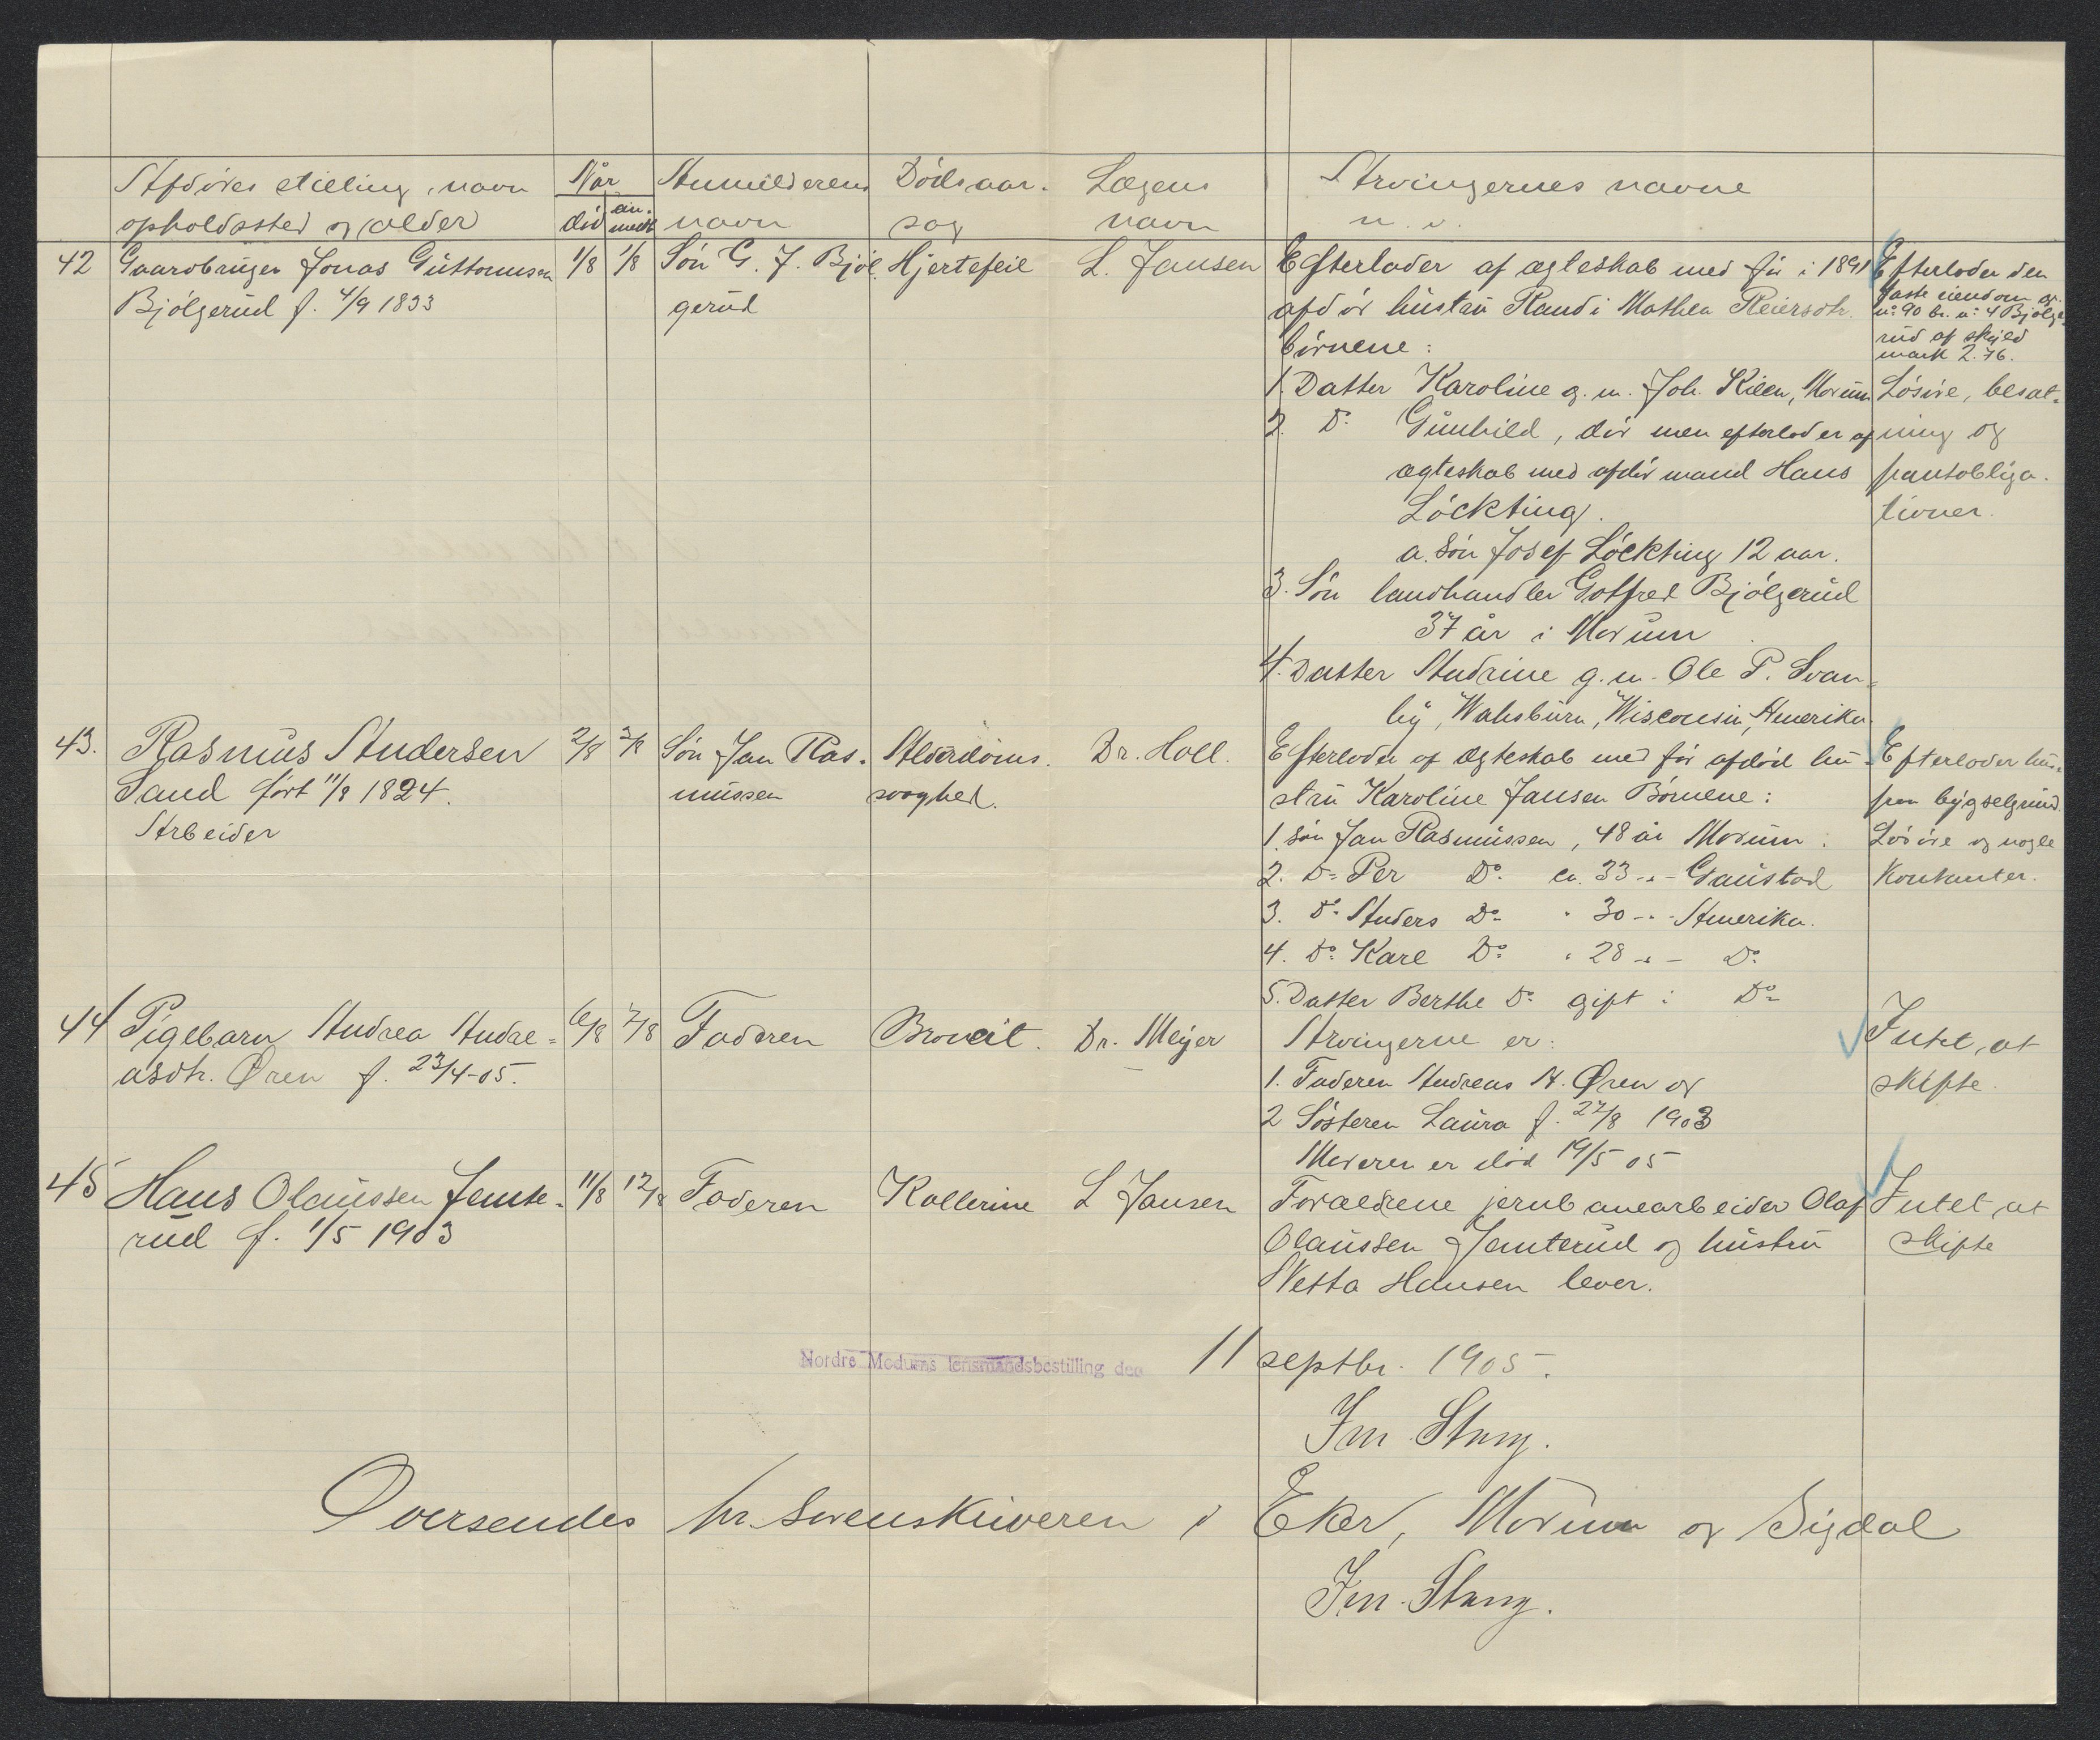 Afdødes stilling, navn
opholdssted og alder
Når
død
an-
meldt
Anmelderens
navn
Dødsaar-
sag
Lægens
navn
Arvingernes navne
m. v.
42 Gaardbruger Jonas Guttormsen
Bjølgerud f. 4/9 1833
1/8 1/8
Søn G. J. Bjøl-
gerud
Hjertefeil
L. Jansen
Efterlader af ægteskab med før i 1891
afdød hustru Randi Mathea Reiersdtr.
børnene:
1. Datter Karoline g. m. Joh. Kilen, Modum
2. Do Gunhild, død men efterlader af
ægteskab med afdød mand Hans
Löckting.
a. Søn Josef Löckting 12 aar.
3. Søn landhandler Gotfred Bjølgerud
37 år i Modum
4. Datter Andrine g. m. Ole P. Svan-
by, Wahsburn, Wisconsin, Amerika
Efterlader den
faste eiendom gr.
no 90 br. no 4 Bjølge-
rud af skyld
mark 2.76.
Løsøre, besæt-
ning og
pantobliga-
tioner.
43. Rasmus Andersen
Sand født 11/8 1824.
Arbeider
2/8 3/8
Søn Jan Ras-
mussen
Alderdoms-
svaghed.
Dr. Holl.
Efterlader af ægteskab med før afdød hu-
stru Karoline Jansen Børnene:
1. søn Jan Rasmussen, 48 år Modum.
2. Do Per Do ca. 33 -"- Gaustad
3. Do Anders Do " 30 -"- Amerika.
4. Do Karl Do " 28 -"- Do
5. Datter Berthe Do gift i Do
Efterlader hus
paa bygselgrund.
Løsøre og nogle
Kontanter.
44 Pigebarn Andrea Andre-
asdtr. Øren f. 23/4-05.
6/8 7/8
Faderen
Bronkit.
Dr. Meyer
Arvingerne er:
1. Faderen Andreas A. Øren og
2 Søsteren Laura f. 27/8 1903
Moderen er død 19/5 05
Intet at
skifte.
45 Hans Olaussen Jemte-
rud f. 1/5 1903
11/8 12/8
Faderen
Kollerine
L Jansen
Forældrene jernbanearbeider Olaf
Olaussen Jemterud og hustru
Netta Hansen lever.
Intet at
skifte
Nordre Modums lensmandsbestilling den 11 septbr. 1905.
Im Stang.
Oversendes hr. Sorenskriveren i Eker, Modum og Sigdal
Im Stang.